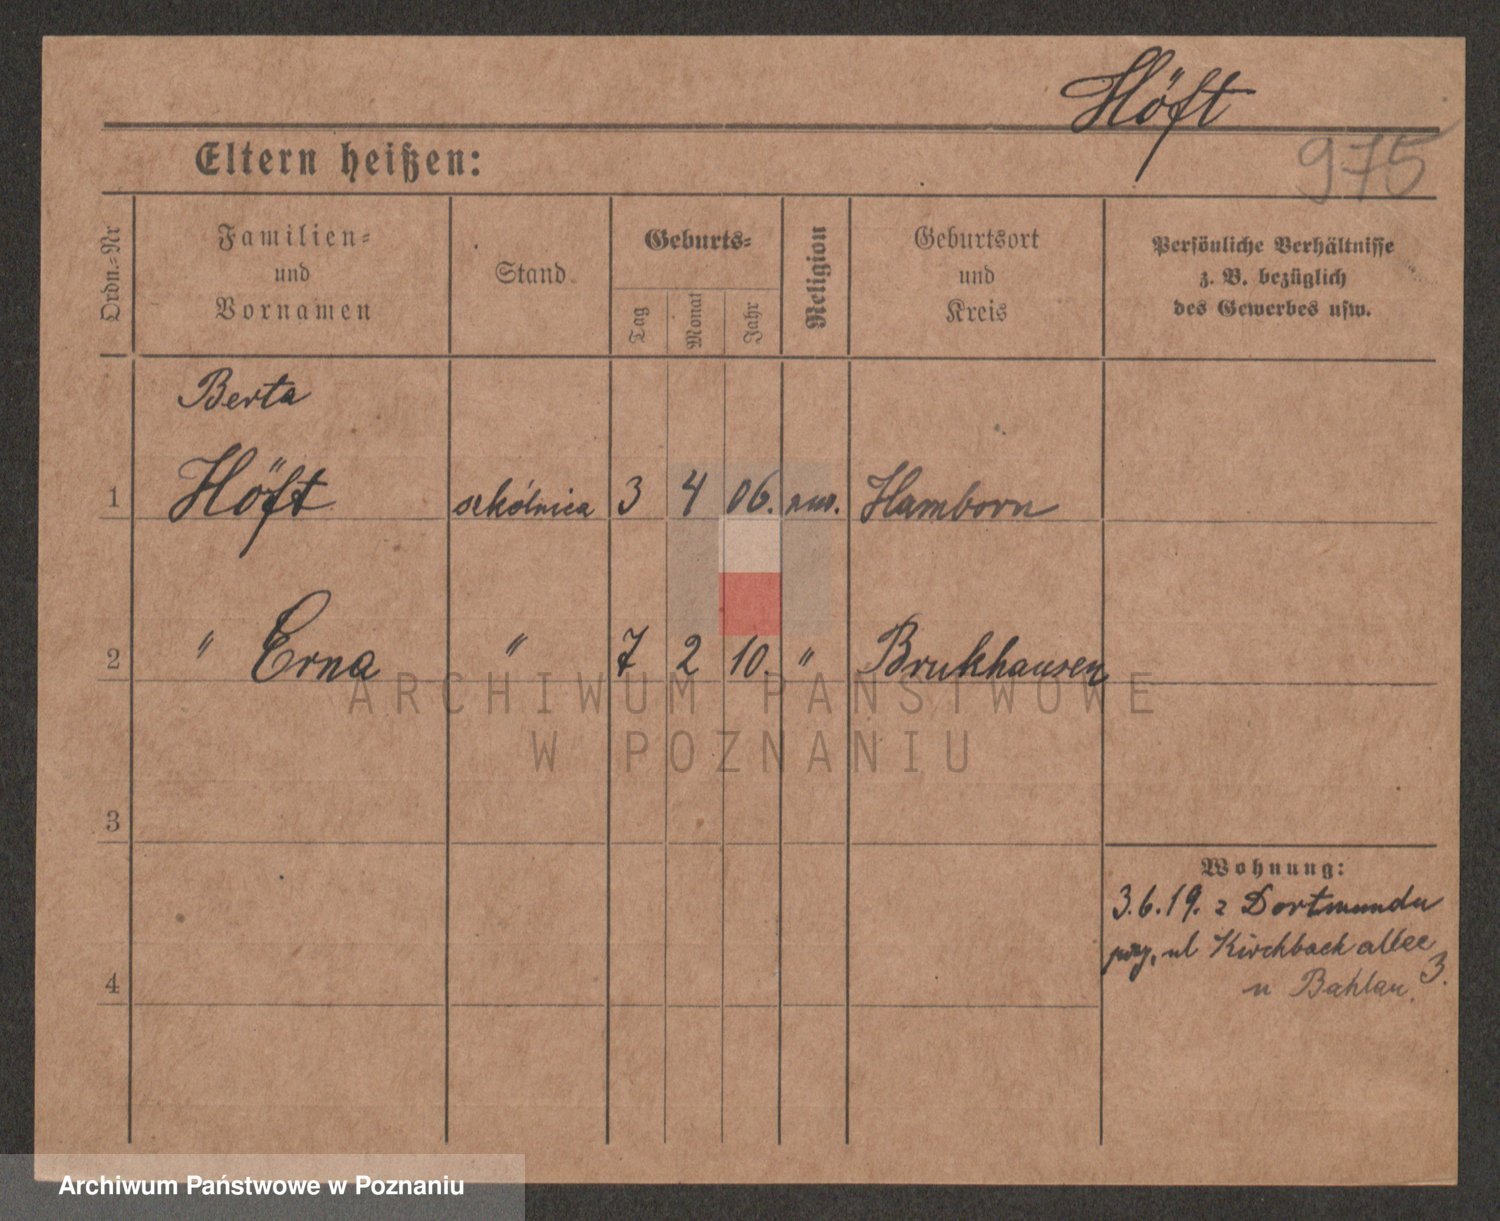 Höft
975
Eltern heißen:
Ordn.-Nr
Familien-
und
Vornamen
Stand
Geburts-
Tag
Monat
Jahr
Religion
Geburtsort
und
Kreis
Persönliche Verhältnisse
z. B. bezüglich
des Gewerbes usw.
Berta
1 Höft szkólnica 3 4 06. Hamborn
2 " Erna " 7 2 10. " Brukhausen
3
4
Wohnung:
3.6.19. z Dortmundu
ul Kirchbach allee
3.
u Bahlau.
ARCHIWUM PAŃSTWOWE
W POZNANIU
Archiwum Państwowe w Poznaniu